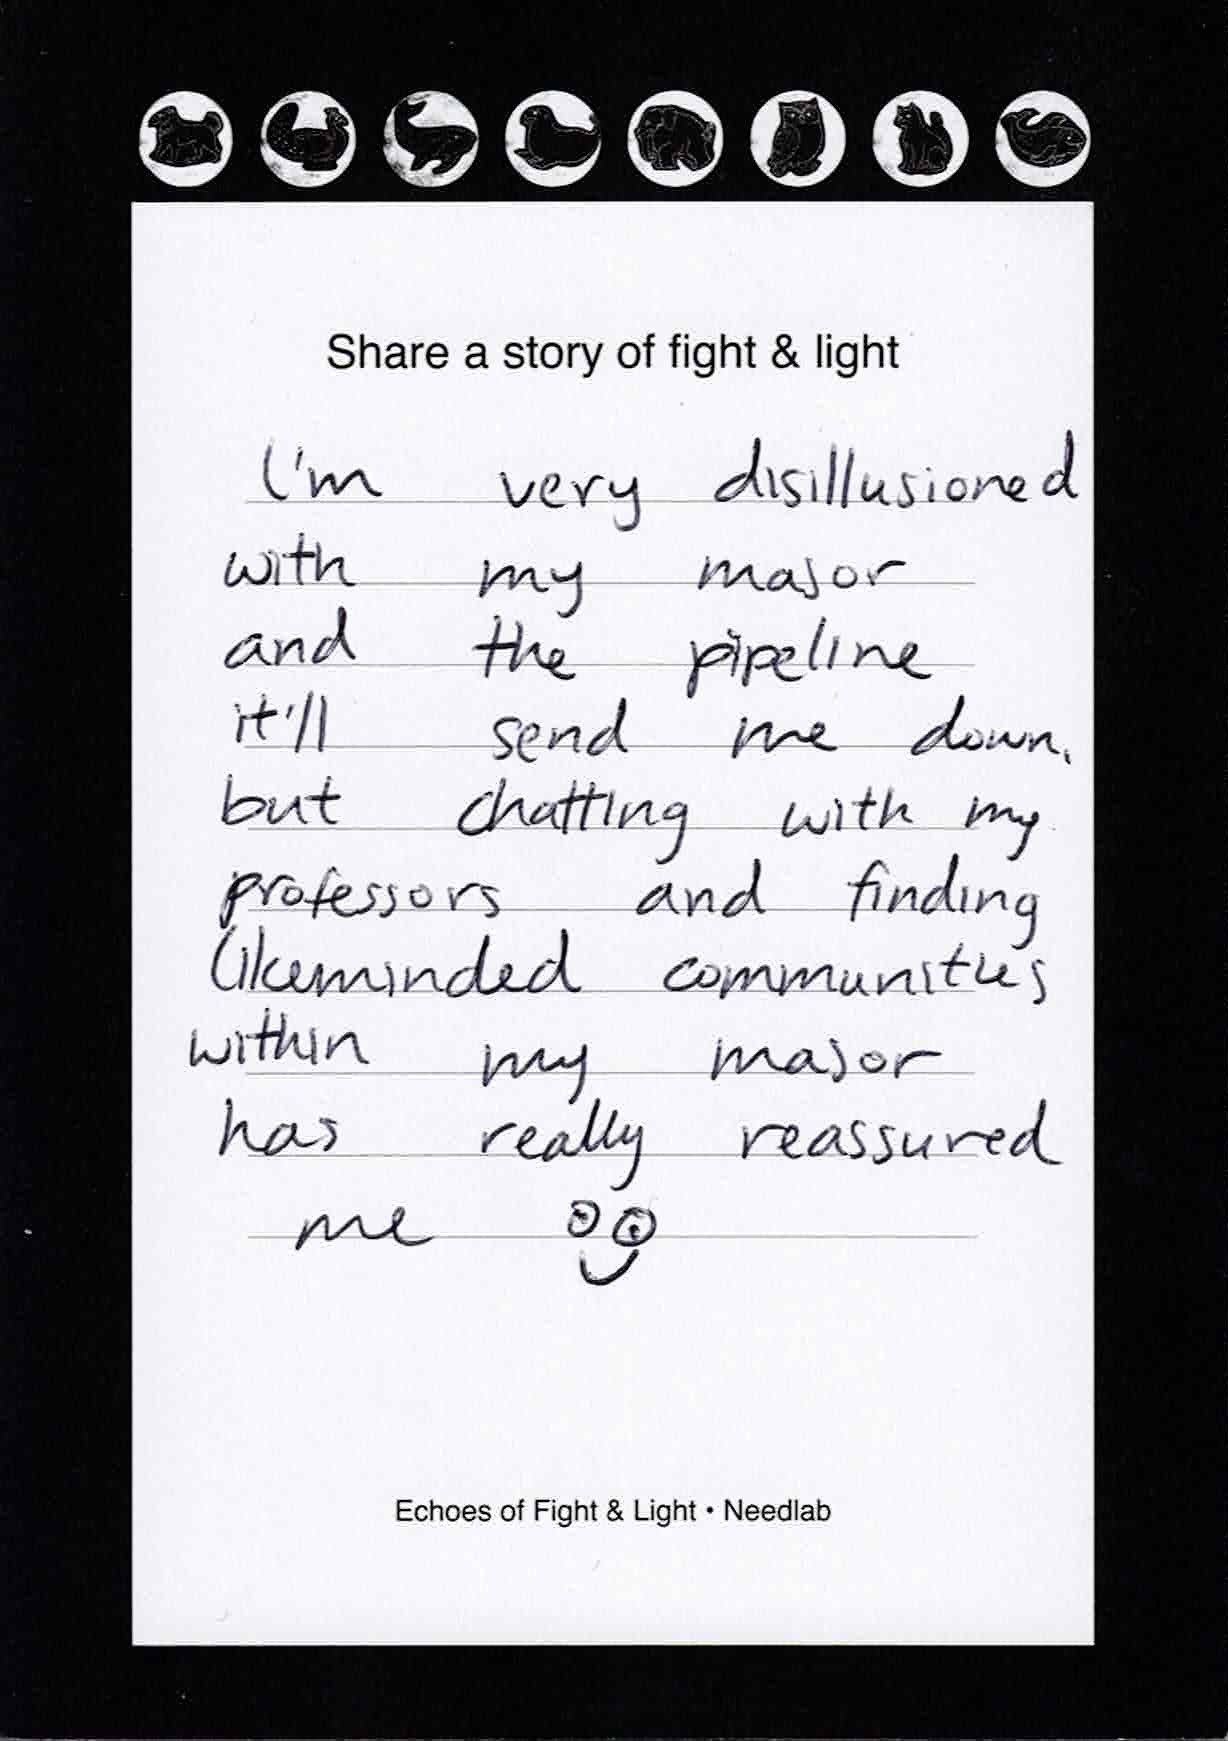 Share a story of fight & light
I'm very disillusioned
with my major
and the pipeline
it'll send me down.
but chatting with my
professors and finding
likeminded communities
within my major
has really reassured
me
Echoes of Fight & Light • Needlab